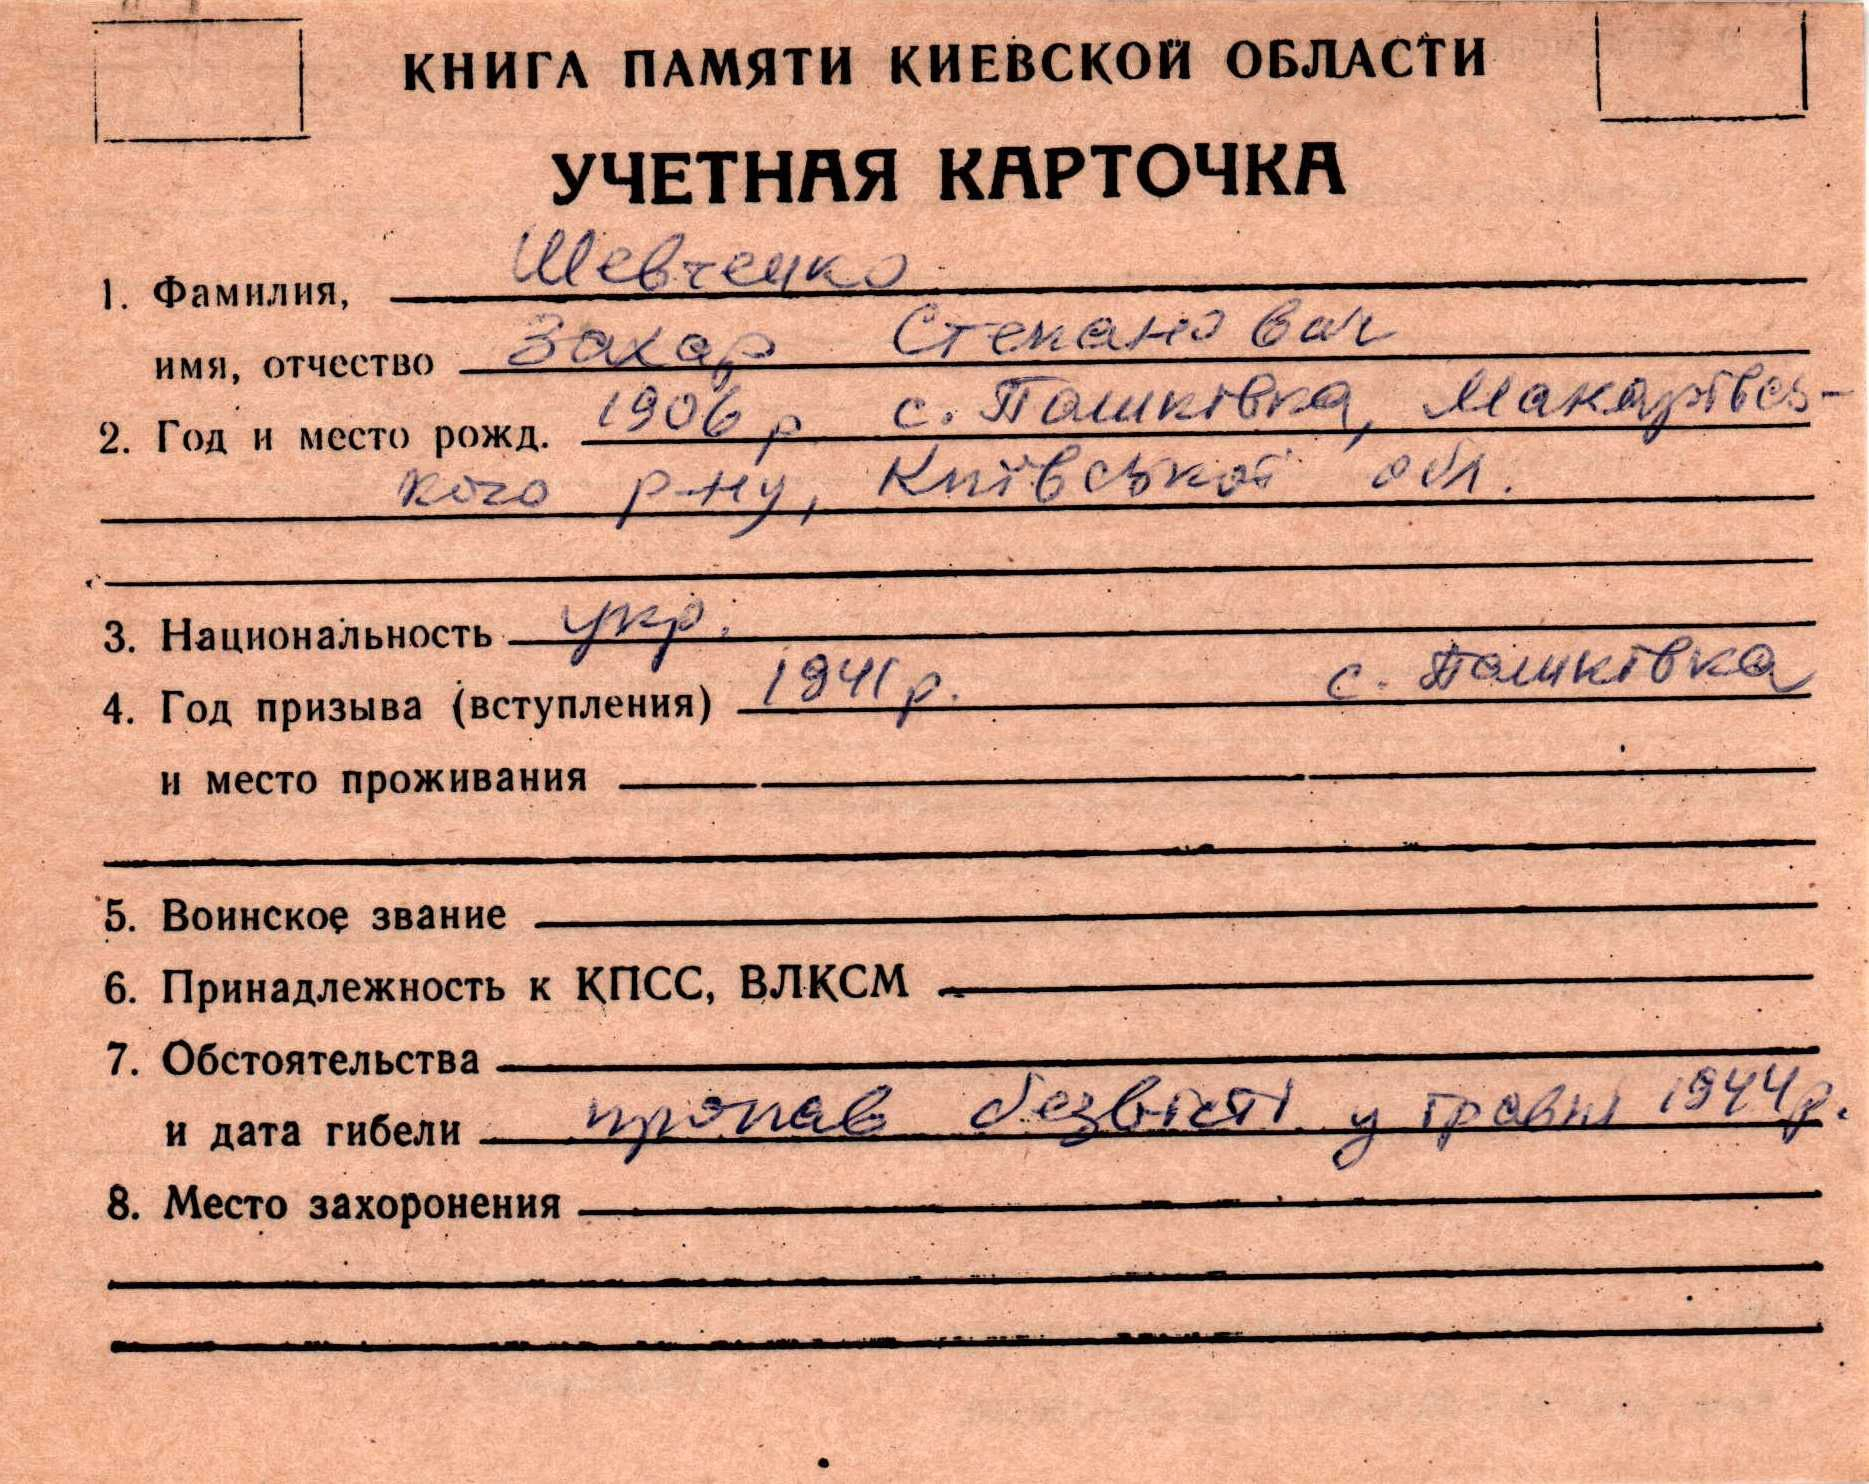 КНИГА ПАМЯТИ КИЕВСКОЙ ОБЛАСТИ
УЧЕТНАЯ КАРТОЧКА
1. Фамилия, Шевченко
имя, отчество Захар Степанович
2. Год и место рожд. 1906 р. с. Пашківка, Макарівсь-
кого р-ну, Київської обл.
3. Национальность укр.
4. Год призыва (вступления) 1941 р. с. Пашківка
и место проживания
5. Воинское звание
6. Принадлежность к КПСС, ВЛКСМ
7. Обстоятельства
и дата гибели пропав безвісті у травні 1944 р.
8. Место захоронения